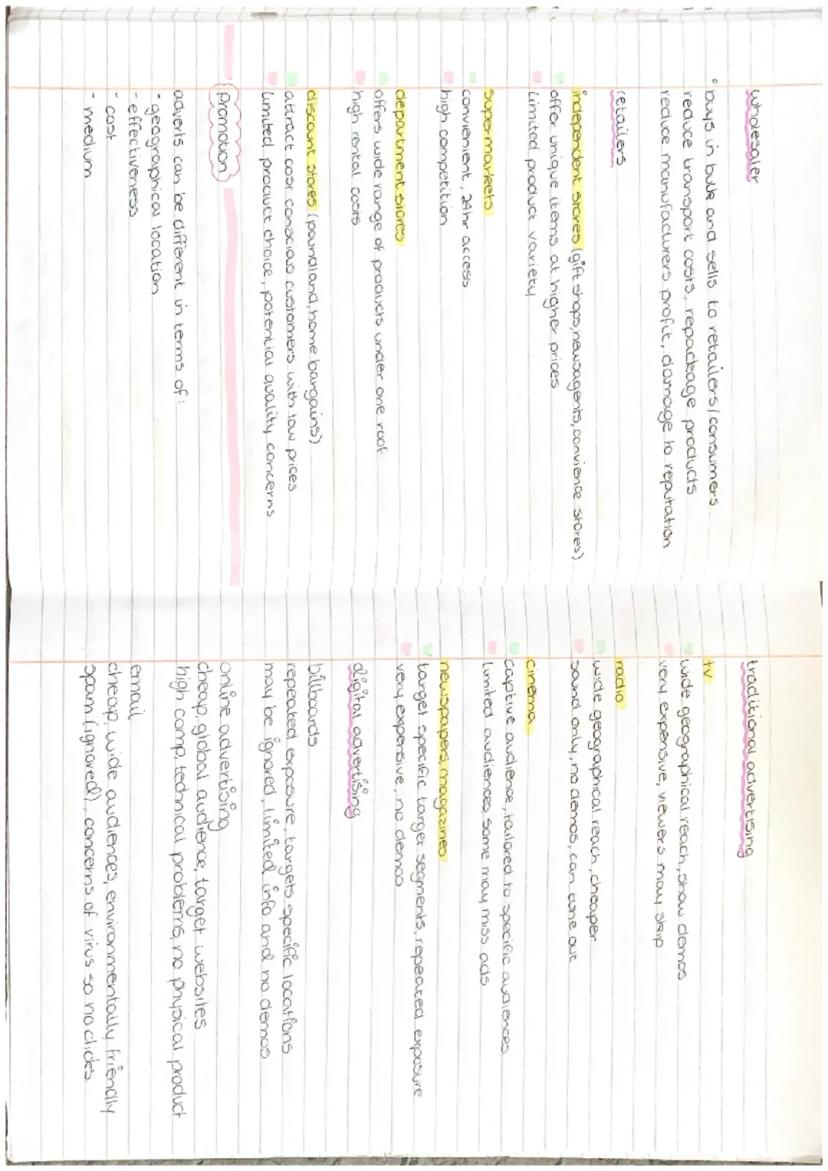 wholesaler
buys in bulk and sells to retailers/consumers
reduce transport costs, repackage products
reduce manufacturers profit, damage to reputation
retailers
independent stores (gift shops, newsagents, convience stores)
offer unique items at higher prices
limited product variety
supermarkets
convienient, 24hr access
high competition
department stores
offers wide range of products under one roof
high rental costs
discount stores (poundland, home bargains)
attract cost conscious customers with low prices
limited product choice, potential quality concerns
promotion
adverts can be different in terms of:
- geographical location
- effectiveness
- cost
- medium
traditional advertising
tv
wide geographical reach, show demos
very expensive, viewers may skip
radio
wide geographical reach, cheaper
sound only, no demos, can tune out
cinema
captive audience, tailored to specific audiences
limited audiences, some may miss ads
newspapers, magazines
target specific target segments, repeated exposure
very expensive, no demos
digital advertising
billboards
repeated exposure, targets specific locations
may be ignored, limited info and no demos
online advertising
cheap, global audience, target websites
high comp, technical problems, no physical product
email
cheap, wide audiences, environmentally friendly
spam (ignored), concerns of virus so no clicks